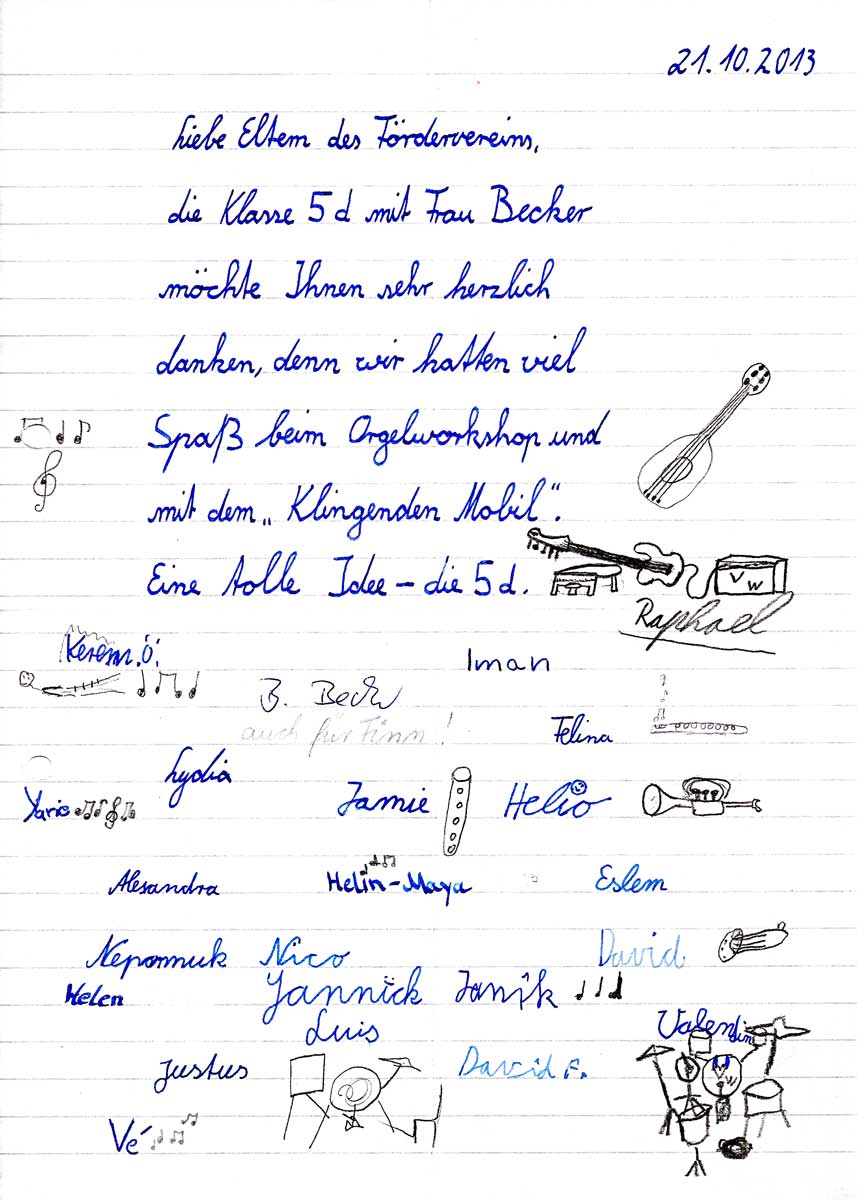 21.10.2013
Liebe Eltern des Fördervereins,
die Klasse 5d mit Frau Becker
möchte Ihnen sehr herzlich
danken, denn wir hatten viel
Spaß beim Orgelworkshop und
mit dem „Klingenden Mobil“.
Eine tolle Idee – die 5d.
VW
Raphael
Kerem.Ö.
Iman
B. Beck
auch für Finn!
Felina
Lydia
Yaric
Jamie
Helio
Alesandra
Helin-Maya
Eslem
Nepomuk
Nico
David
Helen
Yannick
Janik
Luis
Valentin
Justus
David F.
VW
Vé